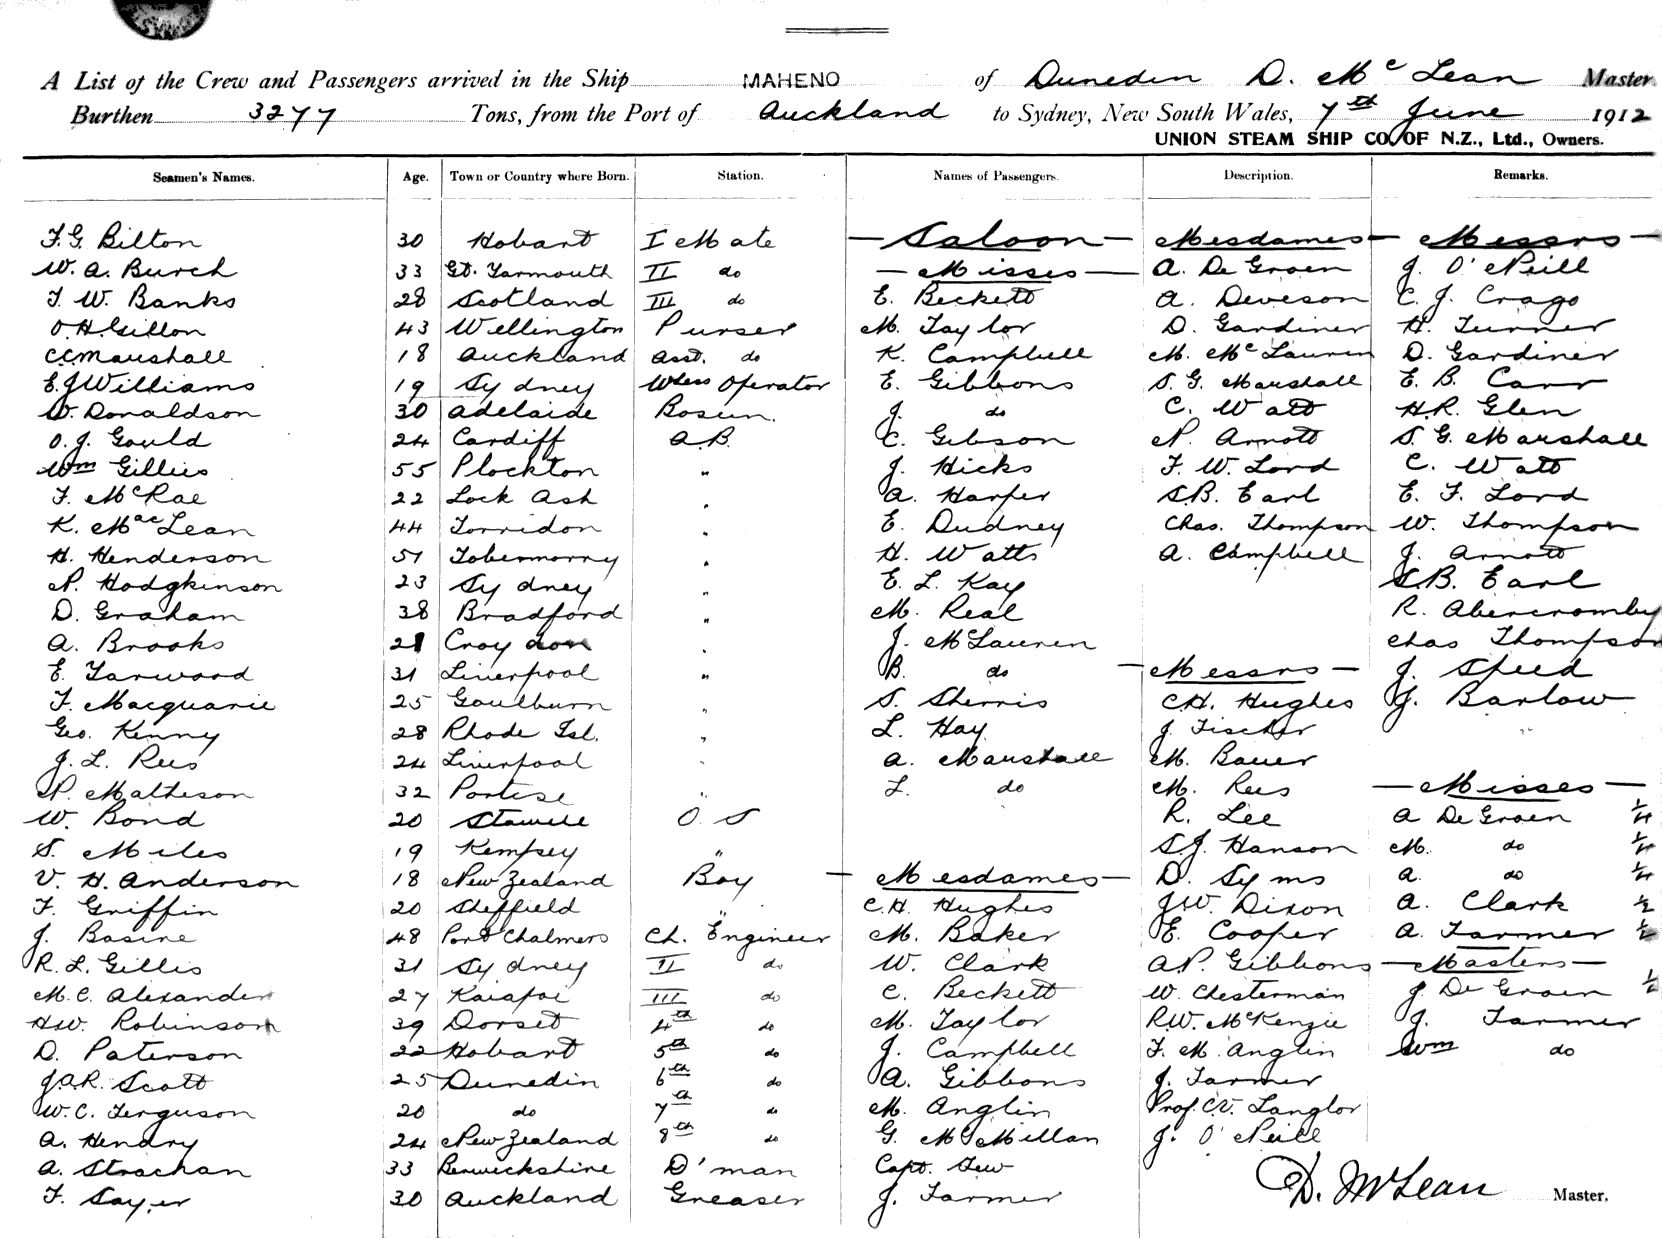 A List of the Crew and Passengers arrived in the Ship MAHENO of Dunedin D. McLean Master
Burthen 3277 Tons, from the Port of Auckland to Sydney, New South Wales, 7th June 1912
UNION STEAM SHIP CO. OF N.Z., Ltd., Owners.
Seamen's Names. Age. Town or Country where Born. Station. Names of Passengers. Description. Remarks.
F.G. Bilton 30 Hobart I Mate — Saloon — Mesdames — Messrs —
W. A. Burch 33 Gt. Yarmouth II do — Misses — A. De Groen J. O'Neill
F. W. Banks 28 Scotland III do E. Beckett A. Deveson C. J. Crago
O.H. Gillon 43 Wellington Purser M. Taylor D. Gardiner H. Turner
C.C. Marshall 18 Auckland Asst. do K. Campbell M. McLauren D. Gardiner
E.J Williams 19 Sydney Wless Operator E. Gibbons S. G. Marshall E. B. Carr
W. Donaldson 30 Adelaide Bosun. J. do C. Watt H.R. Glen
O. J. Gould 24 Cardiff A.B. C. Gibson N. Arnott S. G. Marshall
Wm Gillies 55 Plockton " J. Hicks F. W. Lord C. Watt
F. McRae 22 Lock Ash " A. Harper S.B. Earl E. F. Lord
K. MacLean 44 Torridon " E. Dudney Chas. Thompson W. Thompson
H. Henderson 51 Tobermorry " H. Watts A. Campbell J. Arnott
N. Hodgkinson 23 Sydney " E. L. Kay S.B. Earl
D. Graham 38 Bradford " M. Real R. Abercromby
A. Brooks 21 Croydon " J. McLauren Chas Thompson
E. Yarwood 31 Liverpool " B. do — Messrs — J. Speed
F. Macquarie 25 Goulburn " S. Sherris C.H. Hughes J. Barlow
Geo. Kenny 28 Rhode Isl. " L. Hay J. Fischer
J. L. Rees 24 Liverpool " A. Marshall M. Bauer
N. Matheson 32 Portise " L. do M. Rees — Misses —
W. Bond 20 Stawell O S R. Lee A De Groen 1/4
S. Miles 19 Kempsey " S.J. Hanson M. do 1/4
V. H. Anderson 18 New Zealand Boy — Mesdames — D. Syms A. do 1/4
F. Griffin 20 Sheffield " C.H. Hughes J.W. Dixon A. Clark 1/2
J. Basire 48 Port Chalmers Ch. Engineer M. Baker E. Cooper A. Farmer 1/2
R. L. Gillis 31 Sydney II do W. Clark A.P. Gibbons — Masters —
M. C. Alexander 27 Kaiapoi III do C. Beckett W. Chesterman J. De Groen 1/2
H.W. Robinson 39 Dorset 4th do M. Taylor R.W. McKenzie J. Farmer
D. Paterson 22 Hobart 5th do J. Campbell F. M. Anglin Wm do
J.A.R. Scott 25 Dunedin 6th do A. Gibbons J. Farmer
W. C. Ferguson 20 do 7th do M. Anglin Prof. C.V. Langlor
A. Hendry 24 New Zealand 8th do G. McMillan J. O'Neill
A. Strachan 33 Berwickshire D'man Capt. Gew
F. Sayer 30 Auckland Greaser J. Farmer
D. McLean Master.